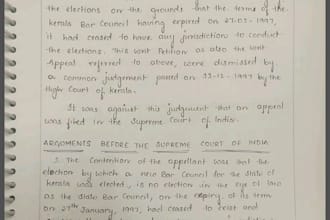 the elections on the grounds that the terms of the
Kerala Bar Council having expired on 27.01.1997,
it had ceased to have any jurisdiction to conduct
the elections. This writ Petition as also the writ
Appeal referred to above, were dismissed by
a common judgement passed on 22-12-1997 by the
High Court of Kerala.
It was against this judgement that an appeal
was filed in the Supreme Court of India.
ARGUMENTS BEFORE THE SUPREME COURT OF INDIA
1. The contention of the appellant was that the
election by which a new Bar Council for the State of
Kerala was elected, is no election in the eye of law
as the State Bar Council, on the expiry of its term
on 27th January, 1997, had ceased to exist and